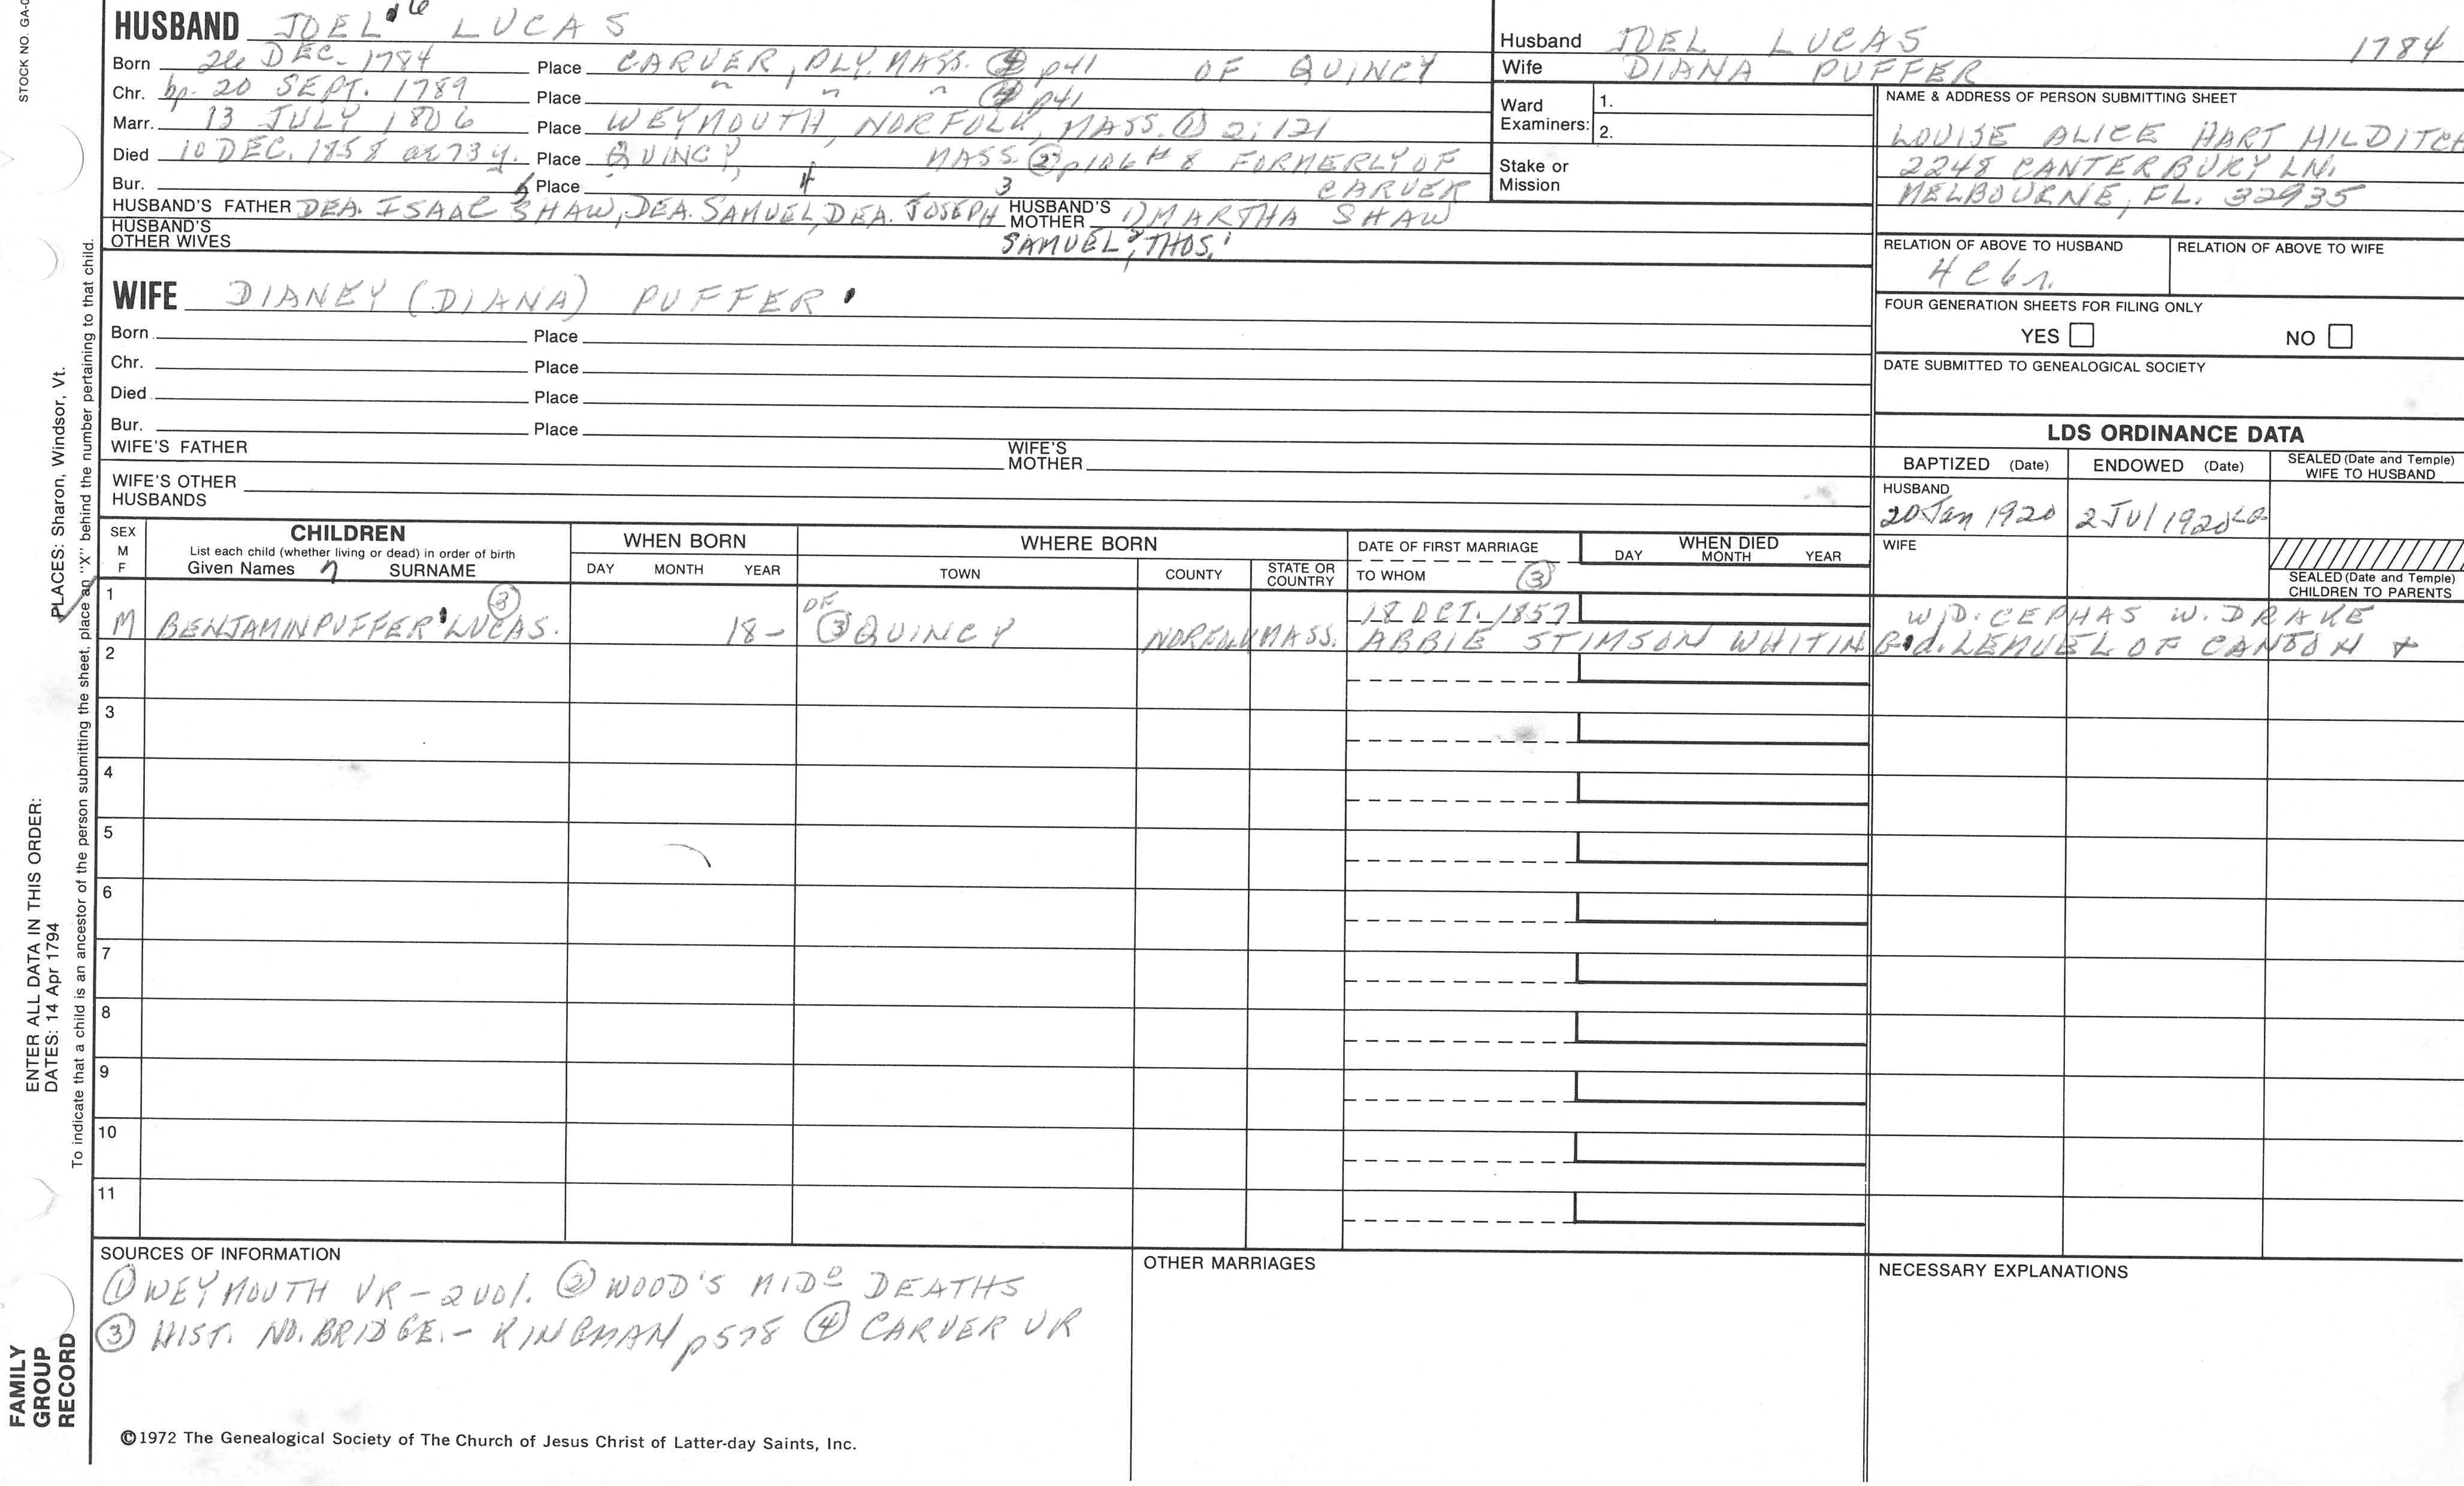 STOCK NO. GA-0
HUSBAND JOEL 6 LUCAS
Born 26 DEC. 1784 Place CARVER, PLY. MASS. ④ p41 OF QUINCY
Chr. bp. 20 SEPT. 1789 Place " " " ④ p41
Marr. 13 JULY 1806 Place WEYMOUTH, NORFOLK, MASS. ① 2:121
Died 10 DEC. 1858 ae 73 y. Place QUINCY, MASS. ② p106 #8 FORMERLY OF
Bur. Place CARVER
HUSBAND'S FATHER DEA. ISAAC 5 SHAW, DEA. SAMUEL 4, DEA. JOSEPH 3 HUSBAND'S MOTHER 1) MARTHA SHAW
HUSBAND'S OTHER WIVES SAMUEL 2, THOS. 1
Husband JOEL LUCAS 1784
Wife DIANA PUFFER
Ward Examiners: 1.
2.
Stake or Mission
NAME & ADDRESS OF PERSON SUBMITTING SHEET
LOUISE ALICE HART HILDITCH
2248 CANTERBURY LN.
MELBOURNE, FL. 32935
RELATION OF ABOVE TO HUSBAND RELATION OF ABOVE TO WIFE
4 C 6 r.
FOUR GENERATION SHEETS FOR FILING ONLY
YES NO
DATE SUBMITTED TO GENEALOGICAL SOCIETY
WIFE DIANEY (DIANA) PUFFER
Born Place
Chr. Place
Died Place
Bur. Place
WIFE'S FATHER WIFE'S MOTHER
WIFE'S OTHER HUSBANDS
LDS ORDINANCE DATA
BAPTIZED (Date) ENDOWED (Date) SEALED (Date and Temple) WIFE TO HUSBAND
HUSBAND
20 Jan 1920 2 Jul 1920 LG
WIFE
SEALED (Date and Temple) CHILDREN TO PARENTS
SEX M F CHILDREN WHEN BORN WHERE BORN DATE OF FIRST MARRIAGE WHEN DIED
List each child (whether living or dead) in order of birth
Given Names 7 SURNAME DAY MONTH YEAR TOWN COUNTY STATE OR COUNTRY TO WHOM ③ DAY MONTH YEAR
1 ③ OF 18 OCT. 1857 WD. CEPHAS W. DRAKE
M BENJAMIN PUFFER LUCAS. 18- ③ QUINCY NORFOLK MASS. ABBIE STIMSON WHITING d. LEMUEL OF CANTON +
2
3
4
5
6
7
8
9
10
11
SOURCES OF INFORMATION OTHER MARRIAGES NECESSARY EXPLANATIONS
① WEYMOUTH VR - 2 VOL. ② WOOD'S MIDO DEATHS
③ HIST. NO. BRIDGE. - KINGMAN p578 ④ CARVER VR
©1972 The Genealogical Society of The Church of Jesus Christ of Latter-day Saints, Inc.
FAMILY GROUP RECORD
ENTER ALL DATA IN THIS ORDER:
DATES: 14 Apr 1794
PLACES: Sharon, Windsor, Vt.
To indicate that a child is an ancestor of the person submitting the sheet, place an "X" behind the number pertaining to that child.